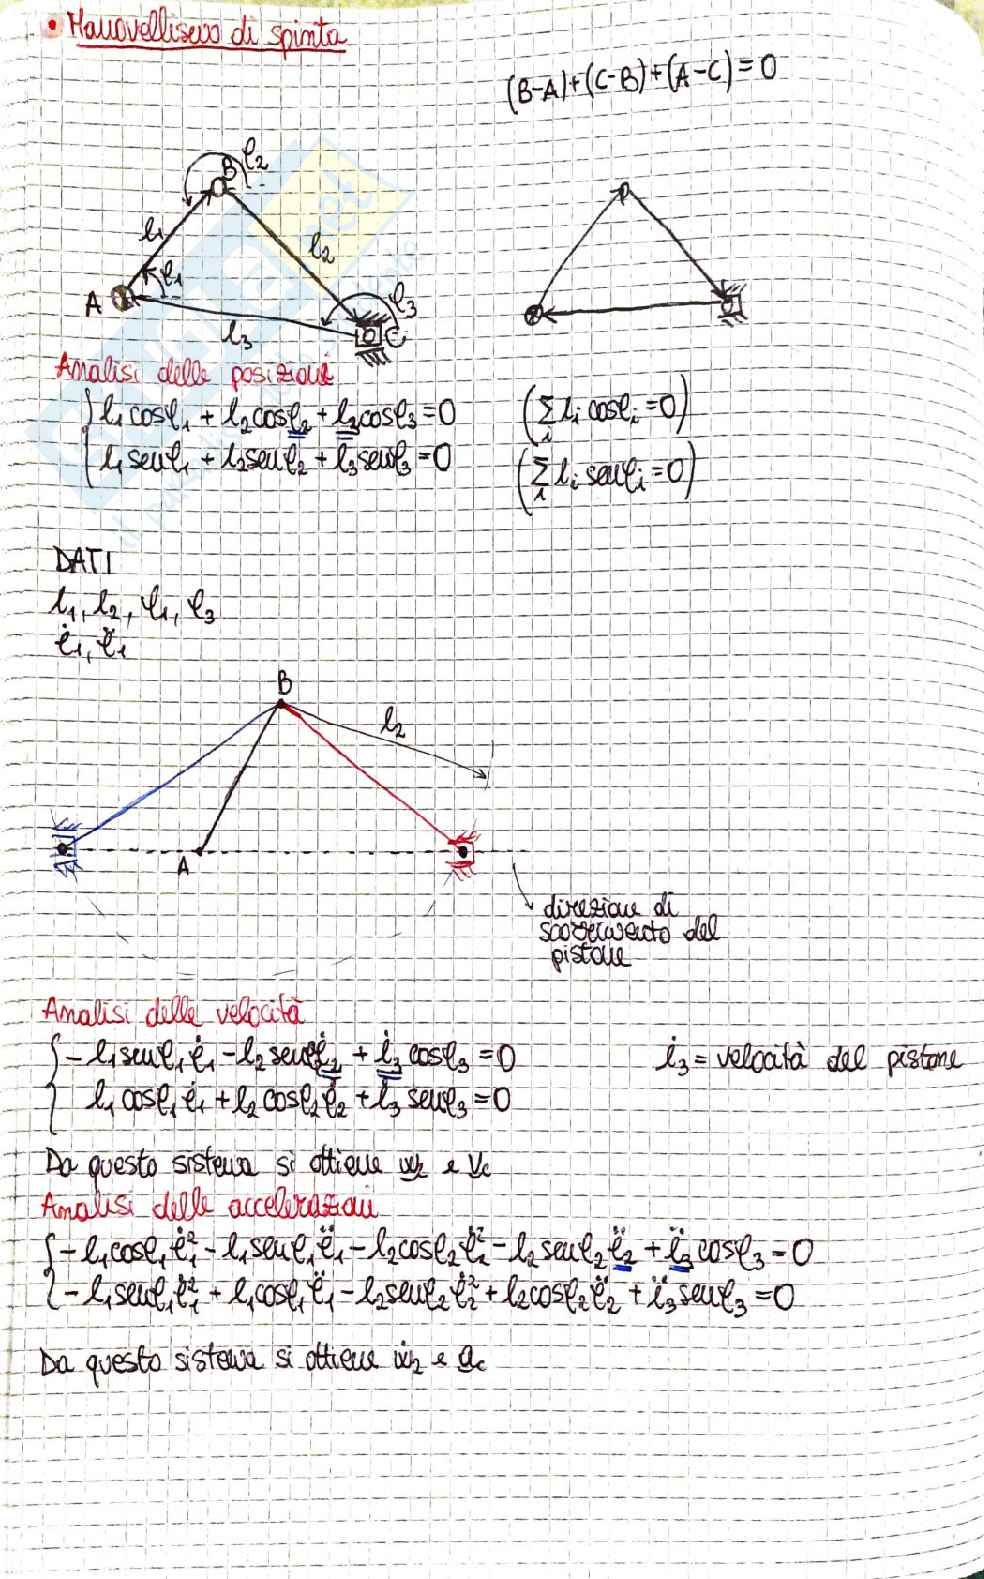 • Manovellismo di spinta
(B-A)+(C-B)+(A-C)=0
φ2
B
l1
φ1
l2
A
φ3
l3
C
Analisi delle posizioni
l1cosφ1 + l2cosφ2 + l3cosφ3=0
(∑i li cosφi=0)
l1senφ1 + l2senφ2 + l3senφ3=0
(∑i li senφi=0)
DATI
l1, l2, φ1, φ3
φ̇1, φ̈1
B
l2
A
direzione di
scorrimento del
pistone
Analisi delle velocità
-l1senφ1φ̇1 -l2senφ2φ̇2 + l̇3cosφ3=0
l̇3 = velocità del pistone
l1cosφ1φ̇1 + l2cosφ2φ̇2 + l̇3senφ3=0
Da questo sistema si ottiene ω2 e vc
Analisi delle accelerazioni
-l1cosφ1φ̇1² - l1senφ1φ̈1 - l2cosφ2φ̇2² - l2senφ2φ̈2 + l̈3cosφ3=0
-l1senφ1φ̇1² + l1cosφ1φ̈1 - l2senφ2φ̇2² + l2cosφ2φ̈2 + l̈3senφ3=0
Da questo sistema si ottiene ω̇2 e ac